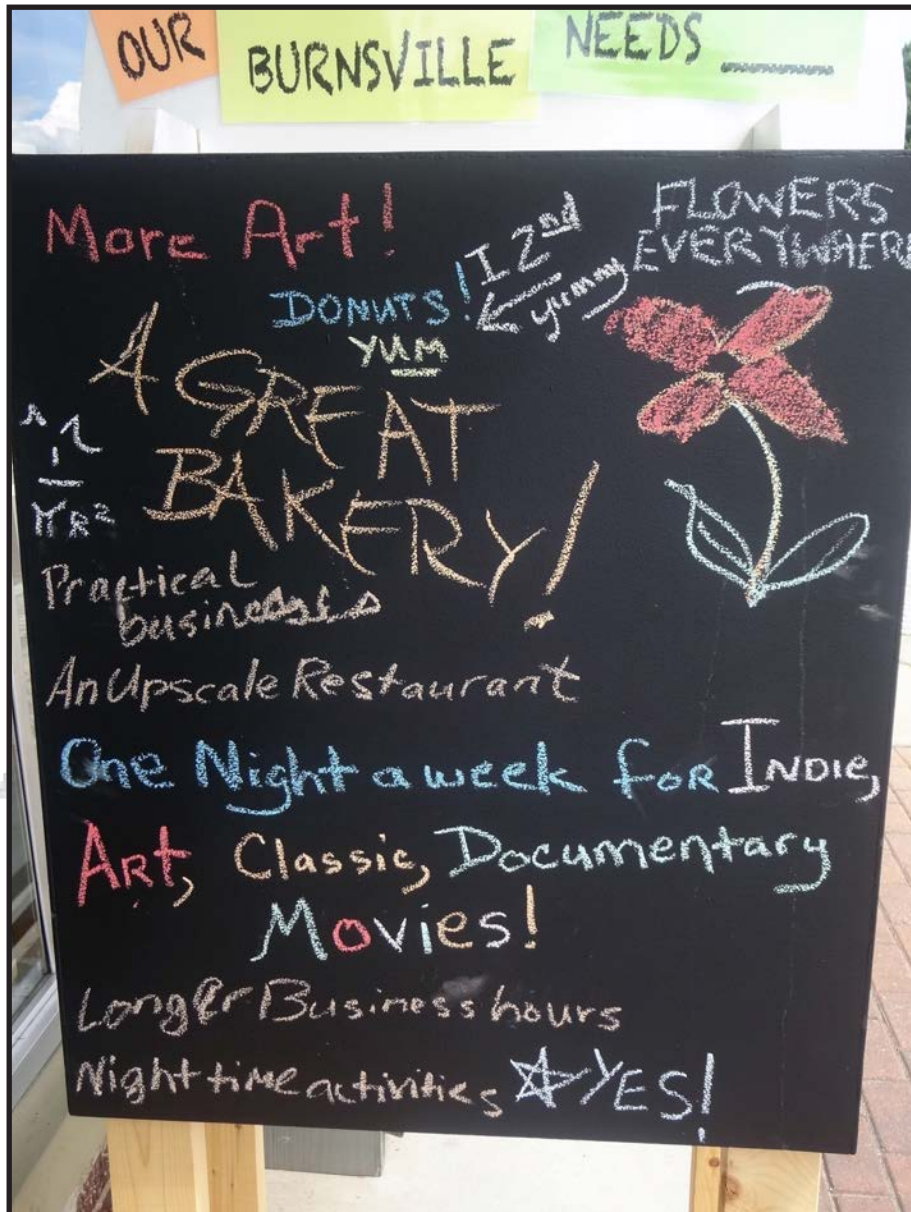 OUR BURNSVILLE NEEDS
More Art!
FLOWERS
EVERYWHERE
I 2nd
yummy
DONUTS!
YUM
A GREAT
BAKERY!
πR²
Practical
businesses
An Upscale Restaurant
One Night a week for INDIE,
ART, Classic, Documentary
Movies!
Longer Business hours
Night time activities YES!